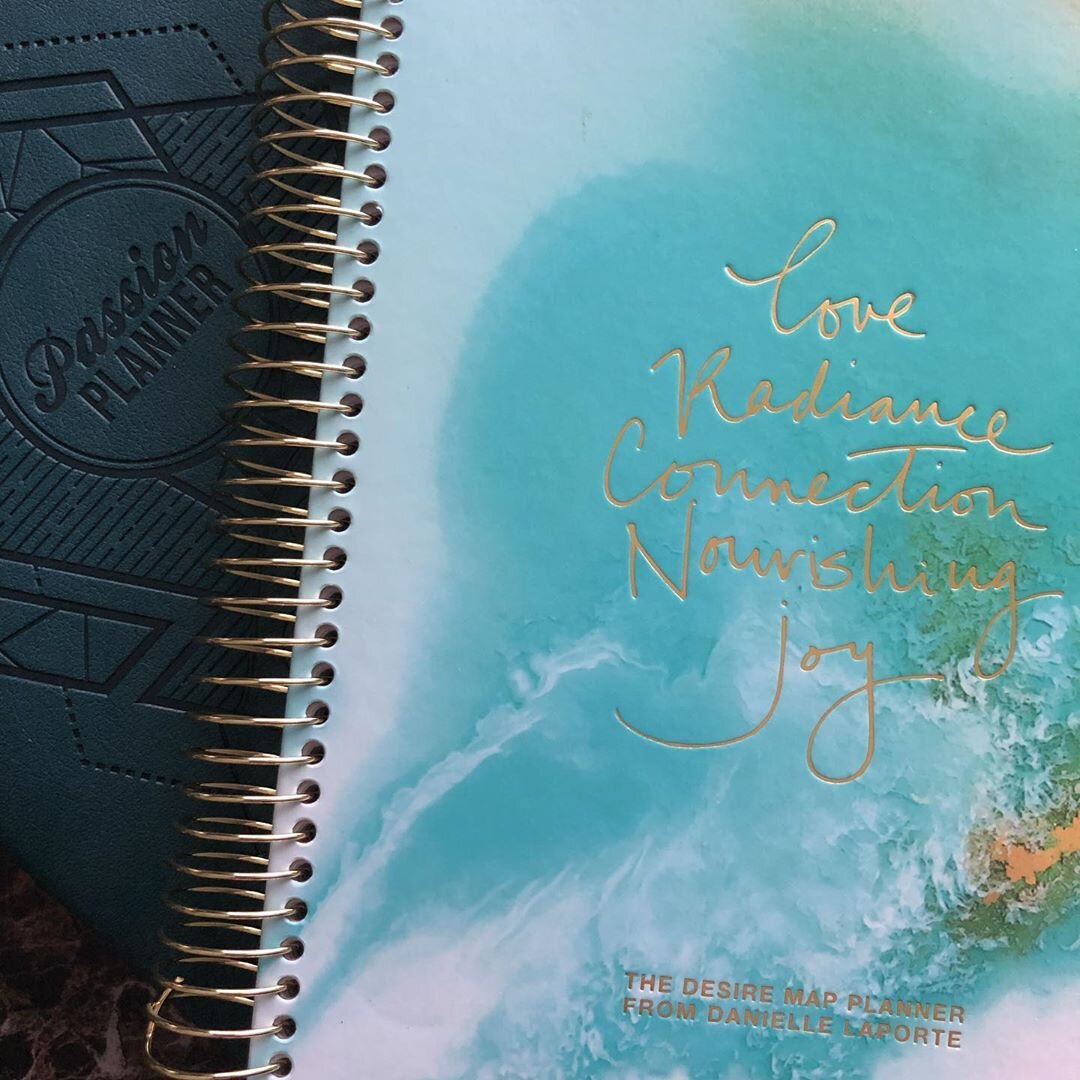 Passion
PLANNER
love
Radiance
Connection
Nourishing
joy
THE DESIRE MAP PLANNER
FROM DANIELLE LAPORTE